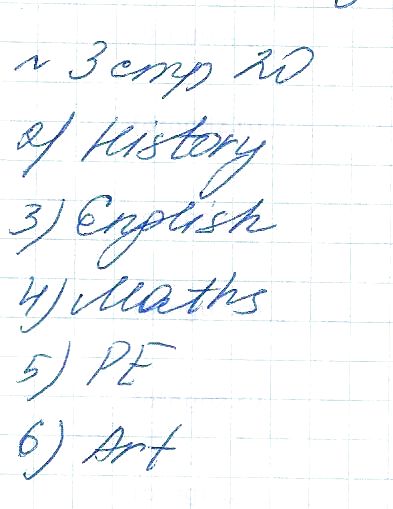 ~ 3 стр 20
2) History
3) English
4) Maths
5) PE
6) Art